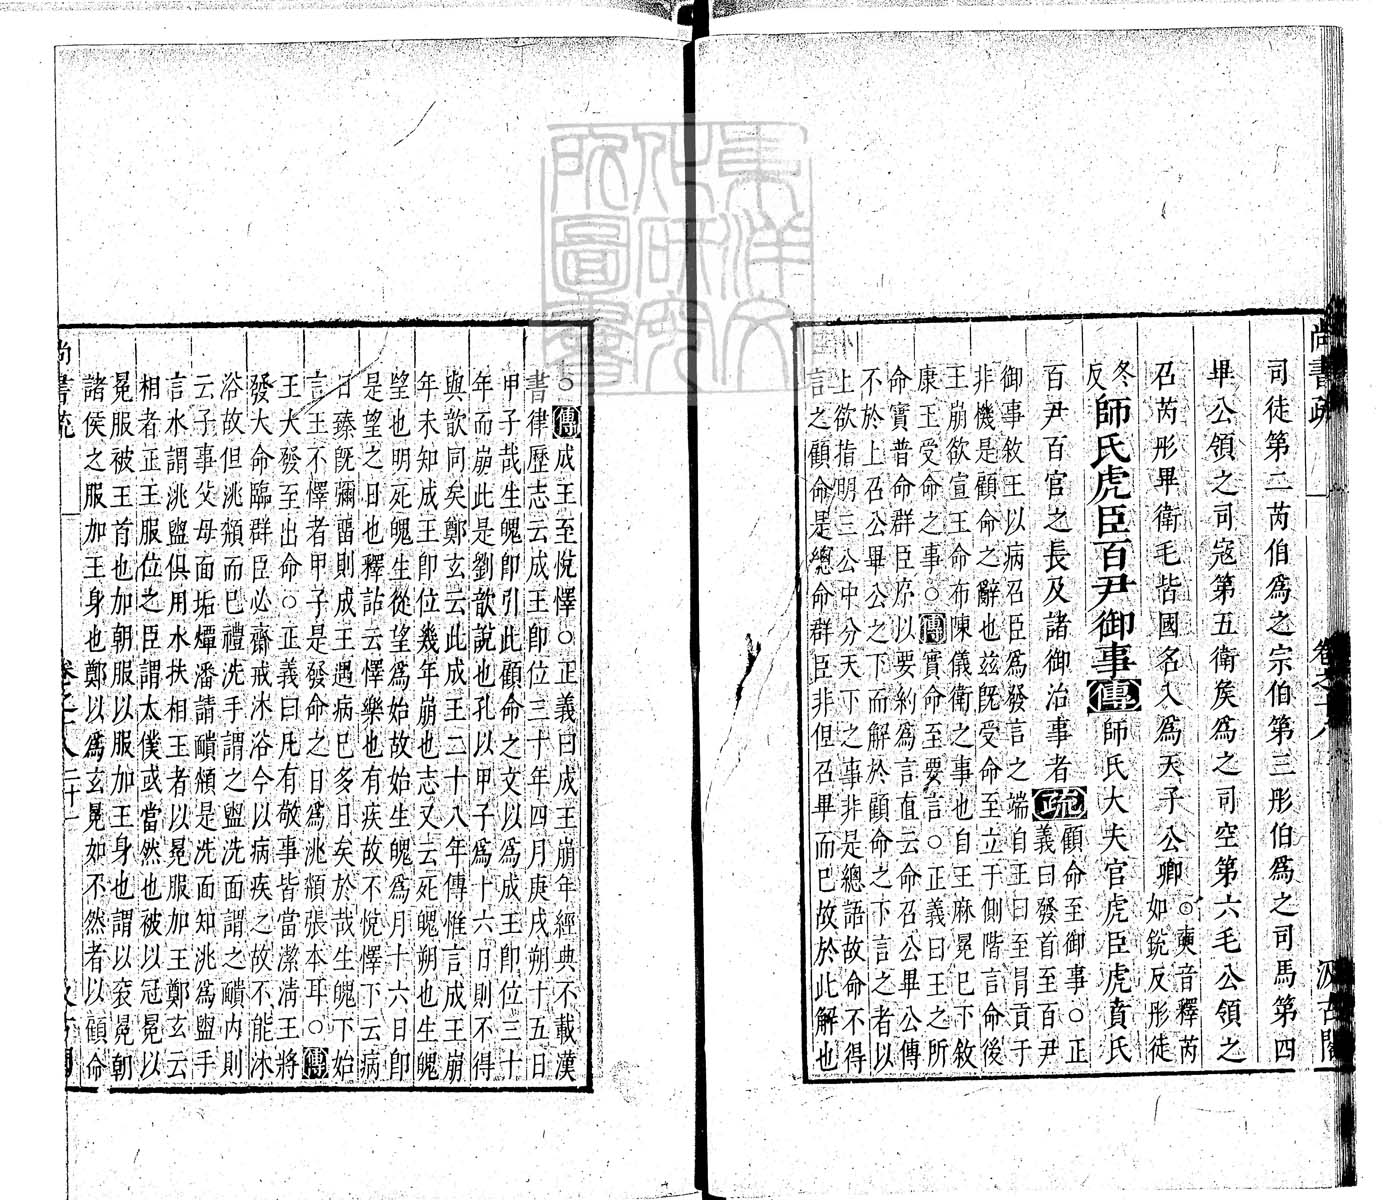 尚書疏
卷之十八
汲古閣
司徒第二芮伯爲之宗伯第三彤伯爲之司馬第四
畢公領之司寇第五衛矦爲之司空第六毛公領之
召芮彤畢衛毛皆國名入爲天子公卿
○奭音釋芮
如銳反彤徒
冬
反
師氏虎臣百尹御事傳師氏大夫官虎臣虎賁氏
百尹百官之長及諸御治事者疏
顧命至御事○正
義曰發首至百尹
御事敘王以病召臣爲發言之端自王曰至冒貢于
非機是顧命之辭也兹旣受命至立于側階言命後
王崩欲宣王命布陳儀衛之事也自王麻冕已下敘
康王受命之事○傳實命至要言○正義曰王之所
命實普命群臣序以要約爲言直云命召公畢公傳
不於上召公畢公之下而解於顧命之下言之者以
上欲指明三公中分天下之事非是總語故命不得
言之顧命是總命群臣非但召畢而已故於此解也
○傳成王至悅懌○正義曰成王崩年經典不載漢
書律歷志云成王卽位三十年四月庚戌朔十五日
甲子哉生魄卽引此顧命之文以爲成王卽位三十
年而崩此是劉歆說也孔以甲子爲十六日則不得
與歆同矣鄭玄云此成王二十八年傳惟言成王崩
年未知成王卽位幾年崩也志又云死魄朔也生魄
望也明死魄生從望爲始故始生魄爲月十六日卽
是望之日也釋詁云懌樂也有疾故不悅懌下云病
日臻旣彌留則成王遇病已多日矣於哉生魄下始
言王不懌者甲子是發命之日爲洮頮張本耳○傳
王大發至出命○正義曰凡有敬事皆當潔清王將
發大命臨群臣必齋戒沐浴今以病疾之故不能沐
浴故但洮頮而已禮洗手謂之盥洗面謂之頮內則
云子事父母面垢燂潘請頮頮是洗面知洮爲盥手
言水謂洮盥俱用水扶相王者以冕服加王鄭玄云
相者正王服位之臣謂太僕或當然也被以冠冕以
冕服被王首也加朝服以服加王身也謂以衮冕朝
諸侯之服加王身也鄭以爲玄冕如不然者以顧命
尚書疏
卷之十八
二十一
汲古閣
東洋文
化研究
所圖書